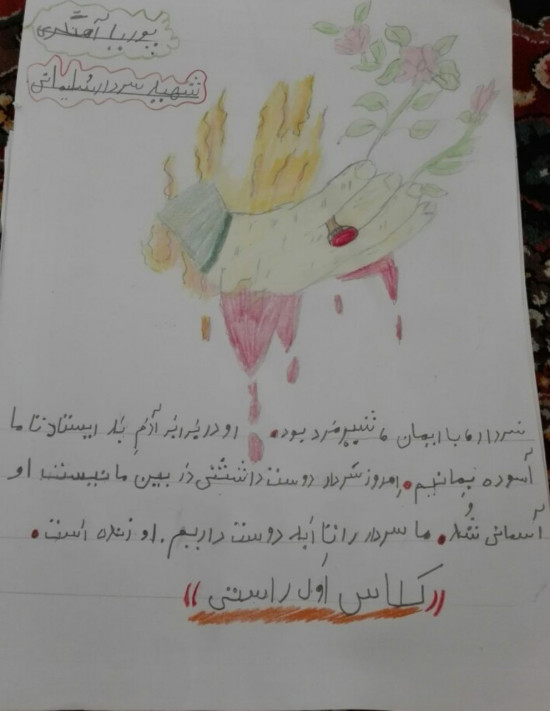 پوریا آهنگری
شهید سردار سلیمانی
سردار ما با ایمان ، شیرمرد بود. او در برابر آدم بد ایستاد تا ما
آسوده بمانیم. امروز سردار دوست داشتنی در بین ما نیست او
آسمانی شد. ما سردار را تا ابد دوست داریم. او زنده است.
«کلاس اول راستی»